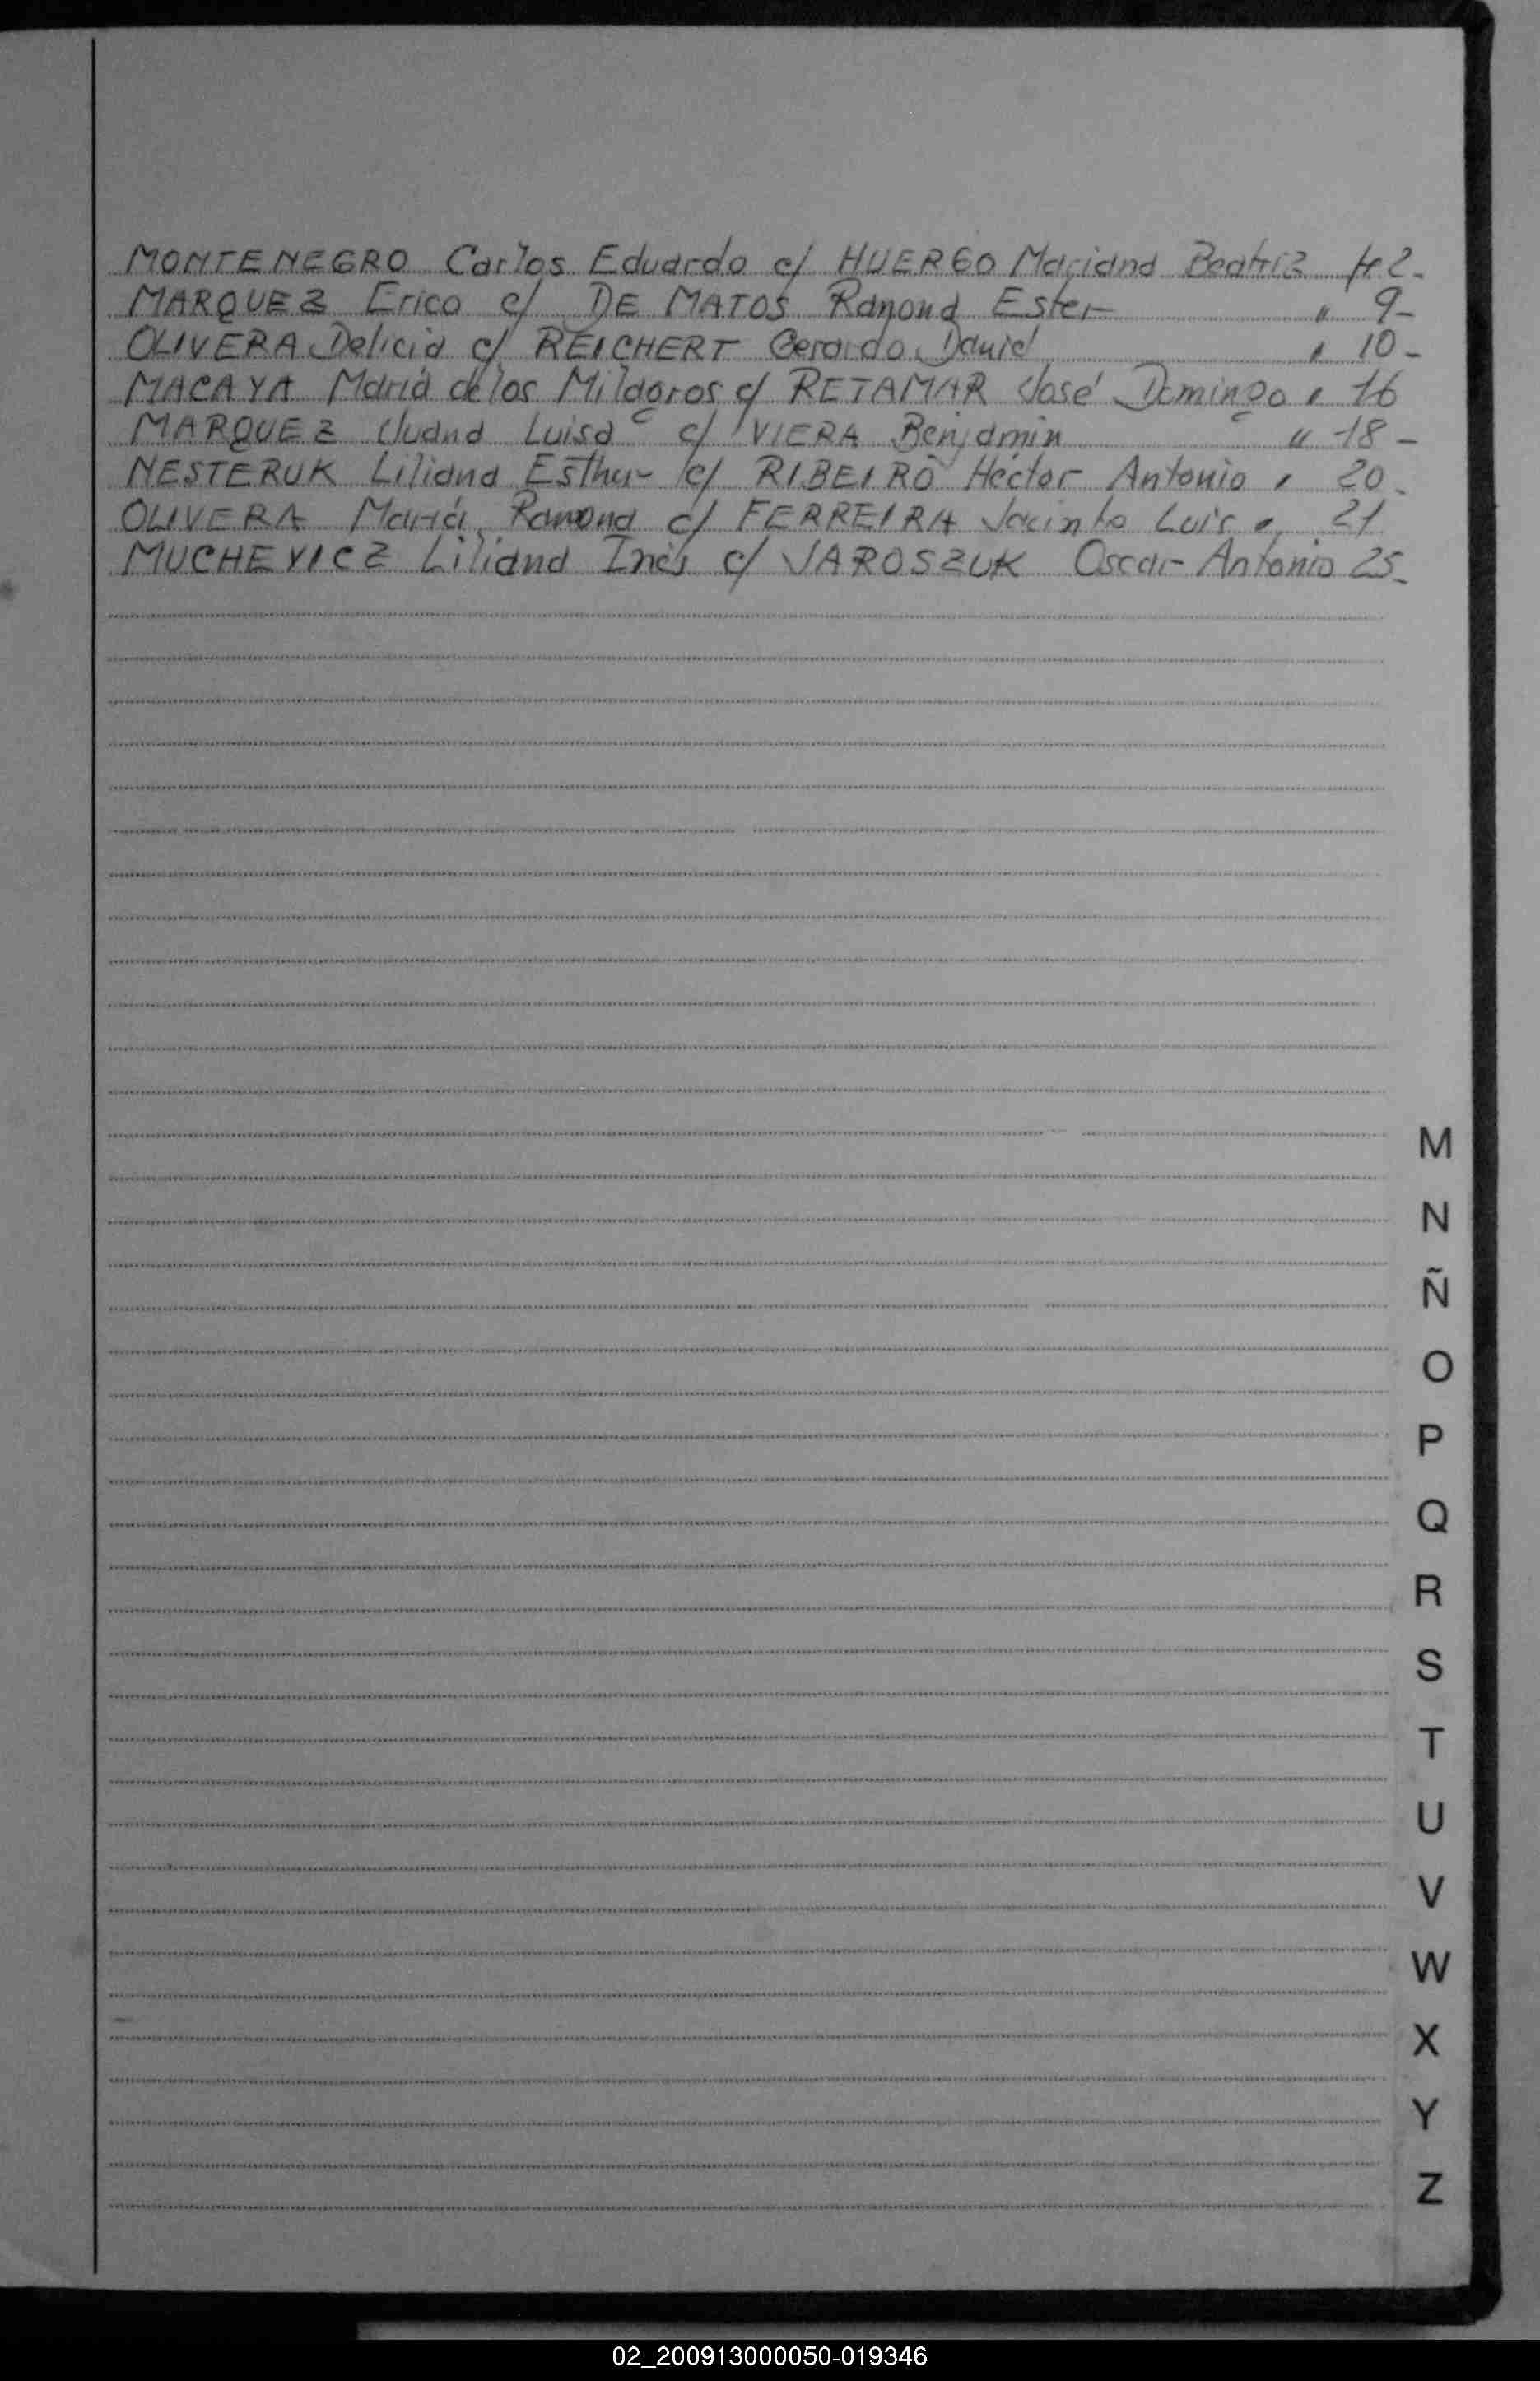 MONTENEGRO Carlos Eduardo c/ HUERGO Mariana Beatriz Fº 2-
MARQUEZ Erico c/ DE MATOS Ramona Ester " 9-
OLIVERA Delicia c/ REICHERT Gerardo Daniel " 10-
MACAYA María de los Milagros c/ RETAMAR José Domingo " 16
MARQUEZ Juana Luisa c/ VIERA Benjamin " 18-
NESTERUK Liliana Esther c/ RIBEIRO Héctor Antonio " 20-
OLIVERA María Ramona c/ FERREIRA Jacinto Luis " 21
MUCHEVICZ Liliana Inés c/ JAROSZUK Oscar Antonio 25-
M
N
Ñ
O
P
Q
R
S
T
U
V
W
X
Y
Z
02_200913000050-019346